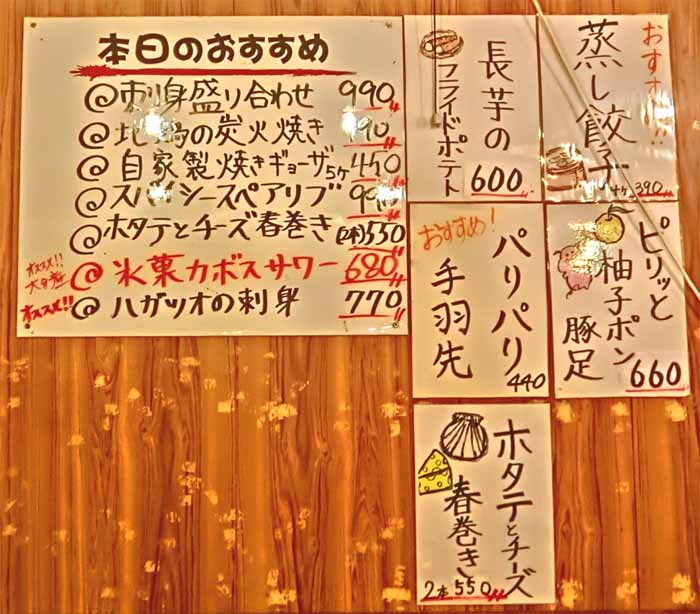 本日のおすすめ
@刺身盛り合わせ 990
@地鶏の炭火焼き
@自家製焼きギョーザ5ケ 450
@スパイシースペアリブ
@ホタテとチーズ春巻き(2本)550
オススメ!! @氷菓カボスサワー 680
オススメ!! @ハガツオの刺身 770
長芋の
フライドポテト
600
おすすめ!!
蒸し餃子
390
おすすめ!
パリパリ
手羽先
440
ピリッと
柚子ポン
豚足
660
ホタテとチーズ
春巻き
2本 550